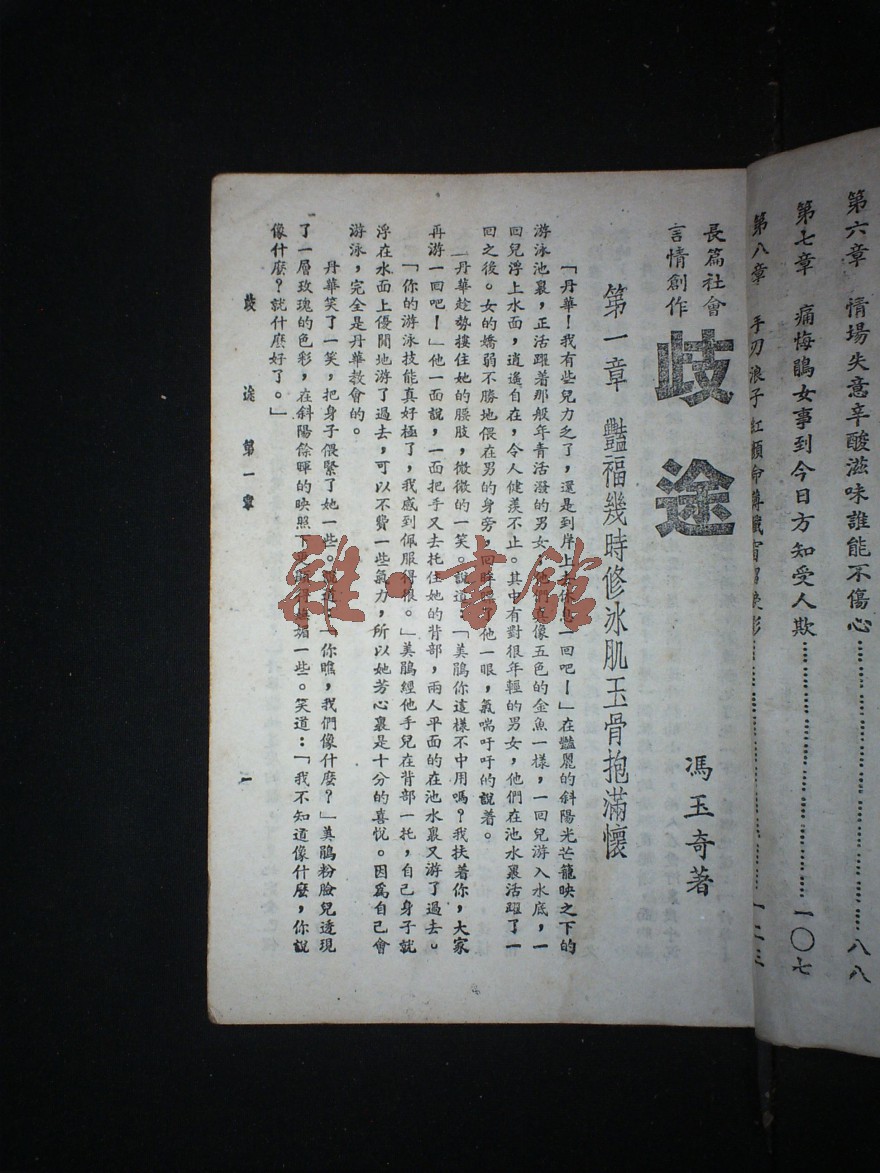 第六章　情場失意辛酸滋味誰能不傷心………………八八
第七章　痛悔鵑女事到今日方知受人欺………………一〇七
第八章　手刃浪子紅顏命薄………………一二三
長篇社會
言情創作
歧途
馮玉奇著
第一章　豔福幾時修冰肌玉骨抱滿懷
「丹華！我有些兒力乏了，還是到岸上去休息一回吧！」在豔麗的斜陽光芒籠映之下的
游泳池裏，正活躍着那般年青活潑的男女，他們真像五色的金魚一樣，一回兒游入水底，一
回兒浮上水面，逍遙自在，令人健羨不止。其中有對很年輕的男女，他們在池水裏活躍了一
回之後。女的嬌弱不勝地偎在男的身旁，回眸他一眼，氣喘吁吁的說着。
丹華趁勢摟住她的腰肢，微微的一笑。說道：「美鵑你這樣不中用嗎？我扶着你，大家
再游一回吧！」他一面說，一面把手又去托住她的背部，兩人平面的在池水裏又游了過去。
「你的游泳技能真好極了，我感到佩服得很。」美鵑經他手兒在背部一托，自己身子就
浮在水面上優閒地游了過去，可以不費一些氣力，所以她芳心裏是十分的喜悅。因爲自己會
游泳，完全是丹華教會的。
丹華笑了一笑，把身子偎緊了她一些。道：「你瞧，我們像什麼？」美鵑粉臉兒透現
了一層玫瑰的色彩，在斜陽餘暉的映照下媚一些。笑道：「我不知道像什麼，你說
像什麼？就什麼好了。」
歧途　第一章　一
雜·書館